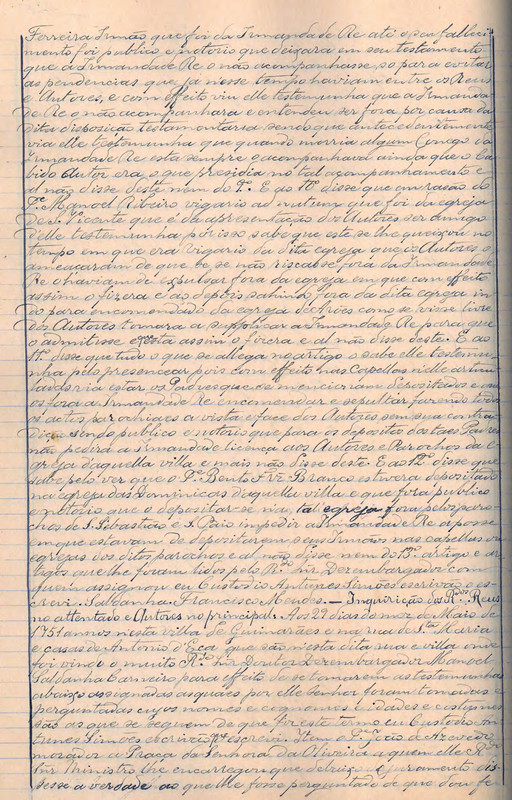 Ferreira Irmão que foi da Irmandade Re até o seu falleci-
mento foi publico e notorio que deixara em seu testamento
que a Irmandade Re o não acompanhasse, so para evitar
as pendencias que ja nesse tempo haviam entre os Reus
e Autores, e com effeito viu elle testemunha que a Irmanda-
de Re o não acompanhara e entendeu ser fora por causa da
dita disposição testamentaria, sendo que antecedentemente
via elle testemunha que quando morria algum Conego da
Irmandade Re esta sempre o acompanhava ainda que o Ca-
bido Autor era o que presidia no tal acompanhamento e
al não disse deste, nem do
E ao disse que em rasão do
Pe Manoel Ribeiro vigario ad nutum que foi da egreja
de S. Vicente que é da apresentação dos Autores, ser amigo
delle testemunha por isso sabe que este se lhe queixou no
tempo em que era vigario da dita egreja que os Autores o
ameaçaram de que, se se não riscasse fora da Irmandade
Re o haviam de expulsar fora da egreja em que com effeito
assim o fizera e ao depois sahindo fora da dita egreja in-
do para encomendado da egreja de como se visse livre
dos Autores tornara a supplicar a Irmandade Re para que
o admitisse e esta assim o fizera e al não disse deste. E ao
11º disse que tudo o que se allega no artigo o sabe elle testemu-
nha pelo presencear pois com effeito nas Capellas nelle articu-
ladas via estar os Padres que se menciona depositados e
os fora a Irmandade Re encomendar e sepultar fazendo todos
os actos parochiaes a vista e face dos Autores sem sua contra-
dição sendo publico e notorio que para os depositos dos taes Padres
não pedira a Irmandade licença aos Autores e Parochos da e-
greja daquella villa e mais não disse deste. E ao 12º disse que
sabe pelo ver que o Pe Bento Frz Branco estivera depositado
na egreja das Dominicas daquella villa e que fora publico
e notorio que o depositar-se na tal egreja fora pelos paro-
chos de S. Sebastião e S. Paio impedir a Irmandade Re a posse
em que estavam de depositarem seus Irmãos nas capellas ou
egrejas dos ditos parochos e al não disse nem do 13º artigo e ar-
tigos que lhe foram lidos pelo Rdo Snr Dezembargador com
quem assignou eu Custodio Antunes Simões escrivão o es-
crevi. Saldanha. Francisco Mendes. — Inquirição dos Rdos Reus
no attentado e Autores no principal. Aos 22 dias do mez de Maio de
1751 annos nesta villa de Guimarães e na rua de Sta Maria
e casas de Antonio d'Eça que são nesta dita rua e villa onde
foi vindo o muito Rdo Snr Doutor Dezembargador Manoel
Saldanha Carneiro para effeito de se tomarem as testemunhas
abaixo assignadas as quaes por elle Senhor foram tomadas e
perguntadas cujos nomes e cognomes, idades e costumes
são os que se seguem de que fiz este termo eu Custodio An-
tunes Simões escrivão o escrevi. Item o Pe João de Azevedo
morador a Praça da Senhora da Oliveira a quem elle Rdo
Snr Ministro lhe encarregou que debaixo do juramento dis-
sesse a verdade ao que lhe fosse perguntado de que dou fe